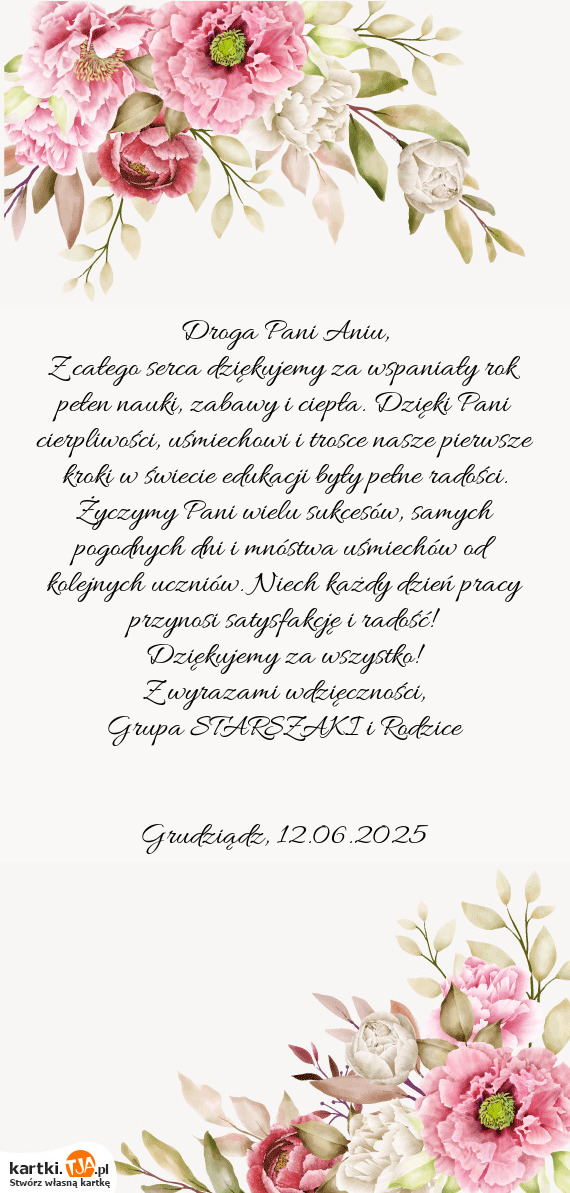 Droga Pani Aniu,
Z całego serca dziękujemy za wspaniały rok
pełen nauki, zabawy i ciepła. Dzięki Pani
cierpliwości, uśmiechowi i trosce nasze pierwsze
kroki w świecie edukacji były pełne radości.
Życzymy Pani wielu sukcesów, samych
pogodnych dni i mnóstwa uśmiechów od
kolejnych uczniów. Niech każdy dzień pracy
przynosi satysfakcję i radość!
Dziękujemy za wszystko!
Z wyrazami wdzięczności,
Grupa STARSZAKI i Rodzice
Grudziądz, 12.06.2025
kartki.TJA.pl
Stwórz własną kartkę